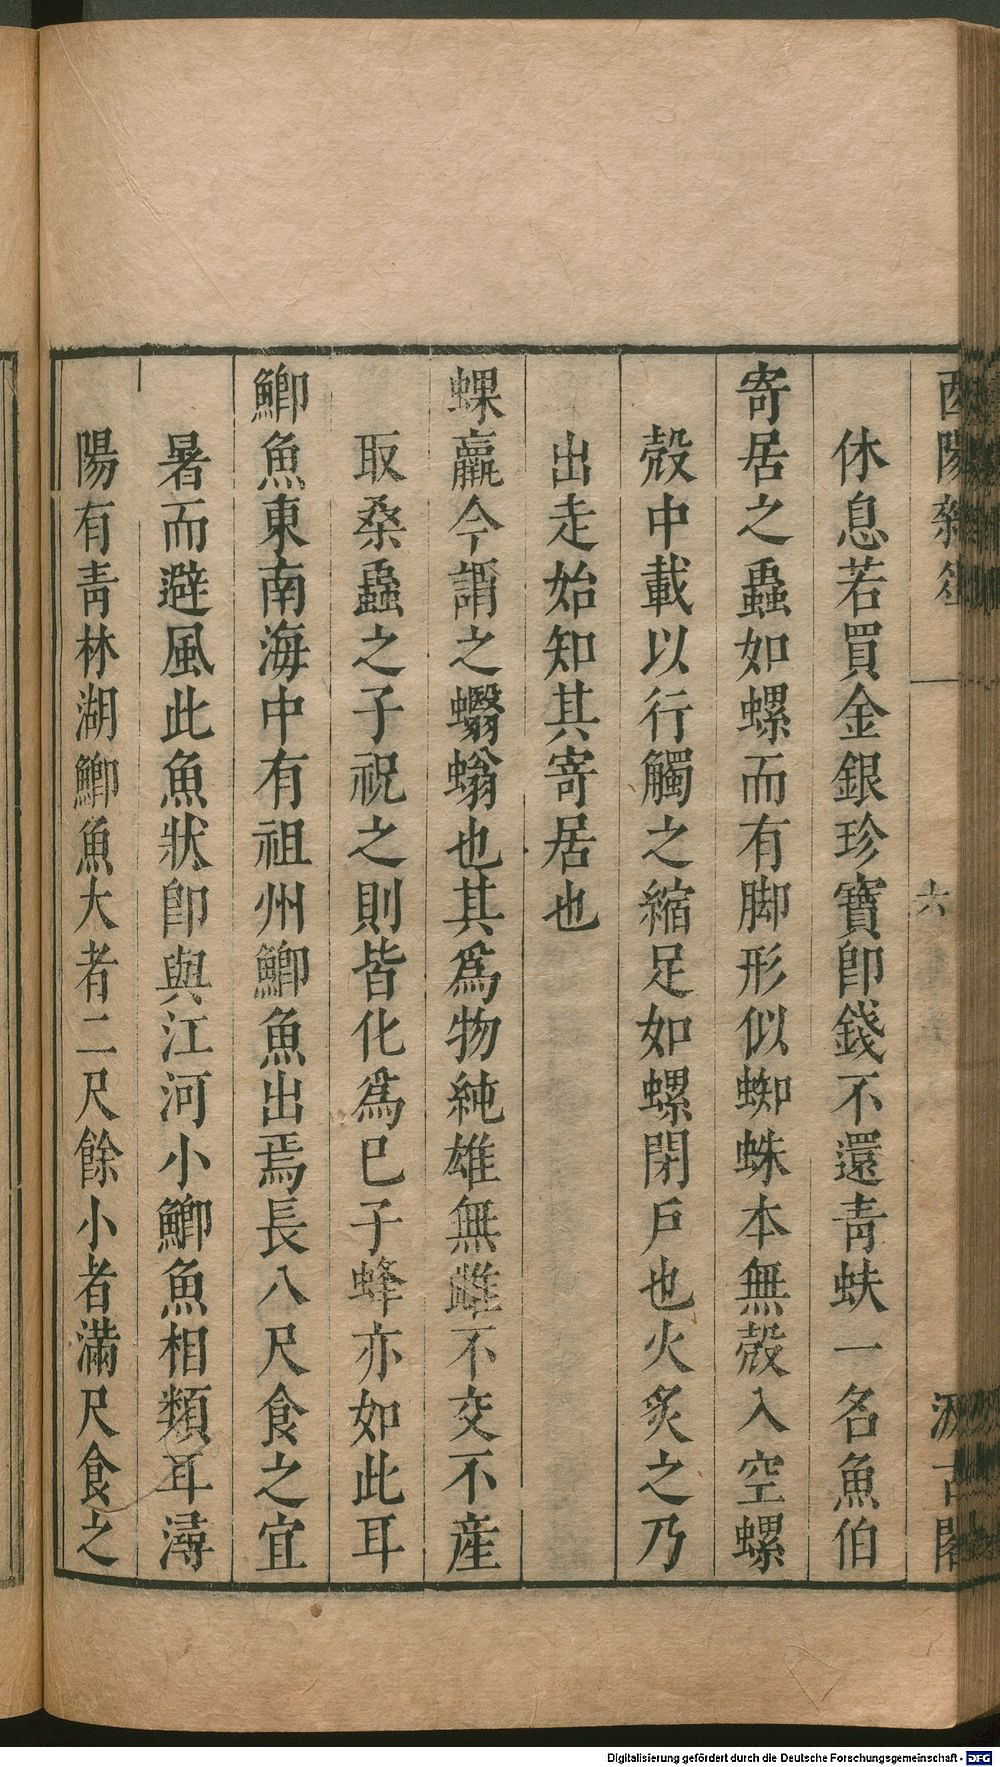 酉陽雜俎 六 汲古閣
休息若買金銀珍寶卽錢不還青蚨一名魚伯
寄居之蟲如螺而有脚形似蜘蛛本無殼入空螺
殼中載以行觸之縮足如螺閉戶也火炙之乃
出走始知其寄居也
蜾蠃今謂之蠮螉也其爲物純雄無雌不交不産
取桑蟲之子祝之則皆化爲巳子蜂亦如此耳
鯽魚東南海中有祖州鯽魚出焉長八尺食之宜
暑而避風此魚狀卽與江河小鯽魚相類耳潯
陽有青林湖鯽魚大者二尺餘小者滿尺食之
Digitalisierung gefördert durch die Deutsche Forschungsgemeinschaft - DFG